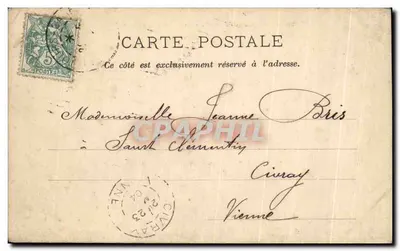 CARTE POSTALE
Ce côté est exclusivement réservé à l'adresse.
Mademoiselle Jeanne Bris
CPAPHIL
à Saint Clémentin
Civray
Vienne
5
23
04